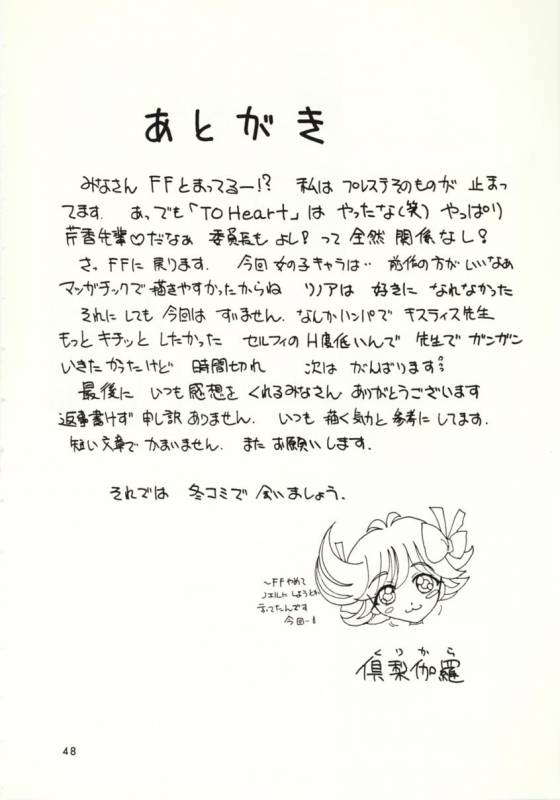 あとがき
みなさん FFとまってるー!? 私は プレステそのものが 止まっ
てます. あっでも「TO Heart」は やったな(笑) やっぱり
芹香先輩♡だなぁ 委員長も よし! って 全然 関係なし!
さ. FFに 戻ります. 今回 女の子キャラは‥ 前作の方が いいなあ
マンガチックで描きやすかったからね リノアは 好きに なれなかった
それに しても 今回は すいません. なんか ハンパで キスティス先生
もっと キチッと したかった セルフィの H度低いんで 先生で ガンガン
いきたかったけど 時間切れ 次は がんばります
最後に いつも 感想を くれるみなさん ありがとうございます
返事書けず 申し訳 ありません. いつも 描く気力と 参考に してます.
短い 文章で かまいません. また お願いします.
それでは 冬コミで 会いましょう.
〜FFやめて
ノエルにしようとか
言ってたんです
今回–
くりから
倶梨伽羅
48